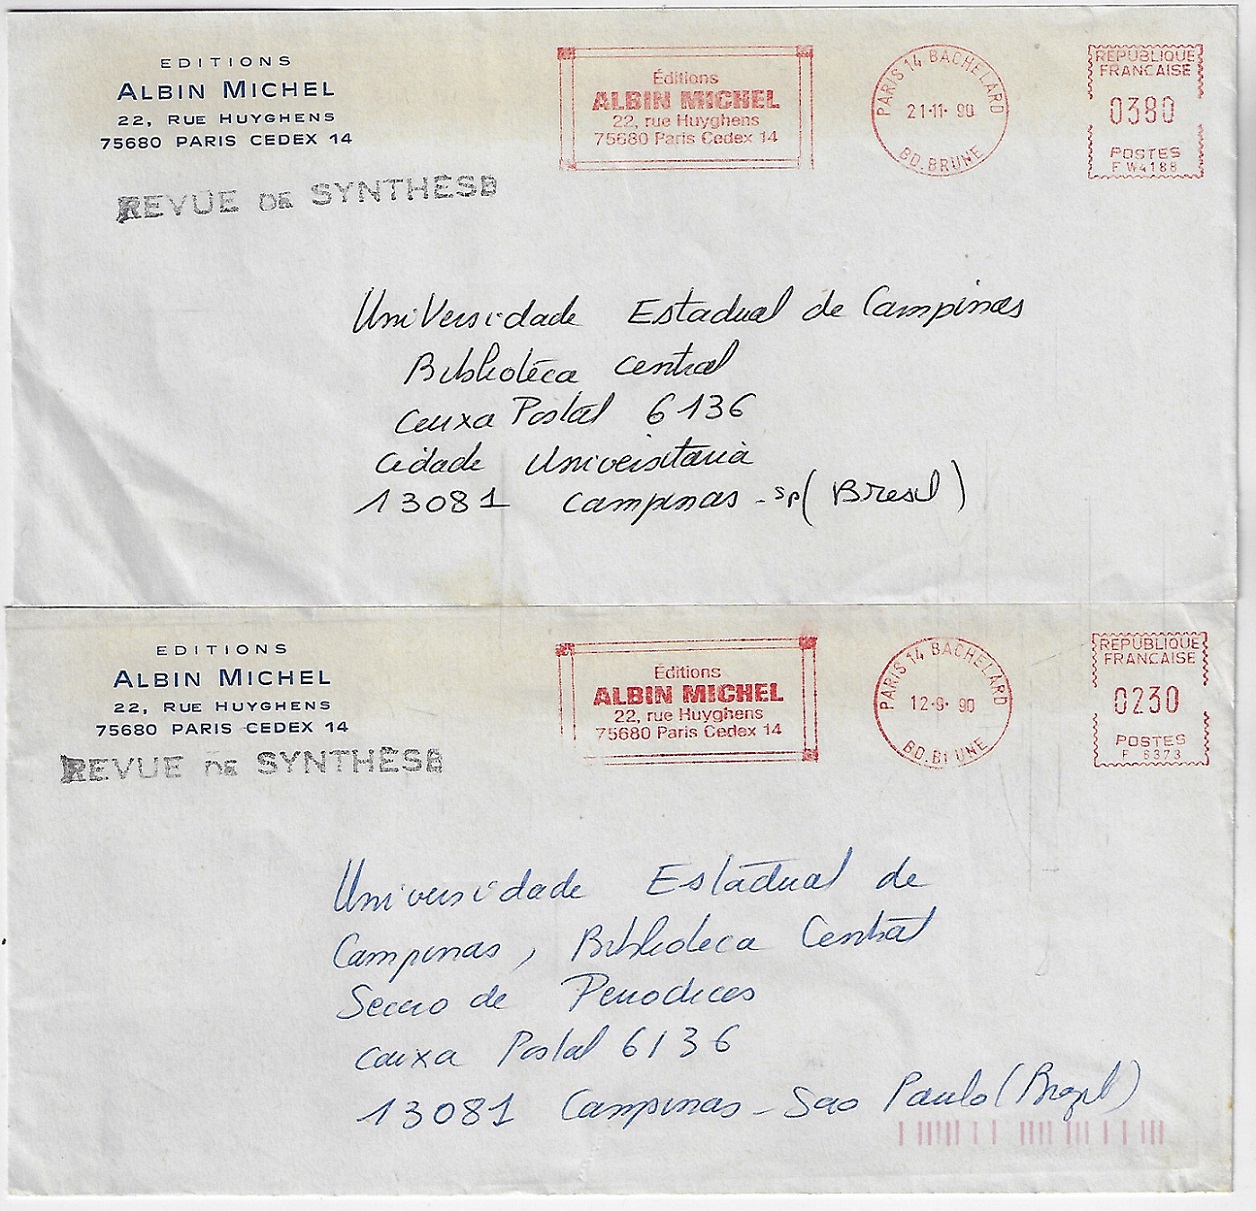 EDITIONS
ALBIN MICHEL
22, RUE HUYGHENS
75680 PARIS CEDEX 14
REVUE DE SYNTHÈSE
Éditions
ALBIN MICHEL
22, rue Huyghens
75680 Paris Cedex 14
PARIS 14 BACHELARD
21-11- 90
BD. BRUNE
REPUBLIQUE
FRANCAISE
0380
POSTES
F W4188
Universidade Estadual de Campinas
Bibliotéca Central
Caixa Postal 6136
Cidade Universitaria
13081 Campinas - SP (Bresil)
EDITIONS
ALBIN MICHEL
22, RUE HUYGHENS
75680 PARIS CEDEX 14
REVUE DE SYNTHÈSE
Éditions
ALBIN MICHEL
22, rue Huyghens
75680 Paris Cedex 14
PARIS 14 BACHELARD
12-9- 90
BD. BRUNE
REPUBLIQUE
FRANCAISE
0230
POSTES
F 6373
Universidade Estadual de
Campinas, Biblioteca Central
Secao de Periodicos
Caixa Postal 6136
13081 Campinas - Sao Paulo (Brazil)